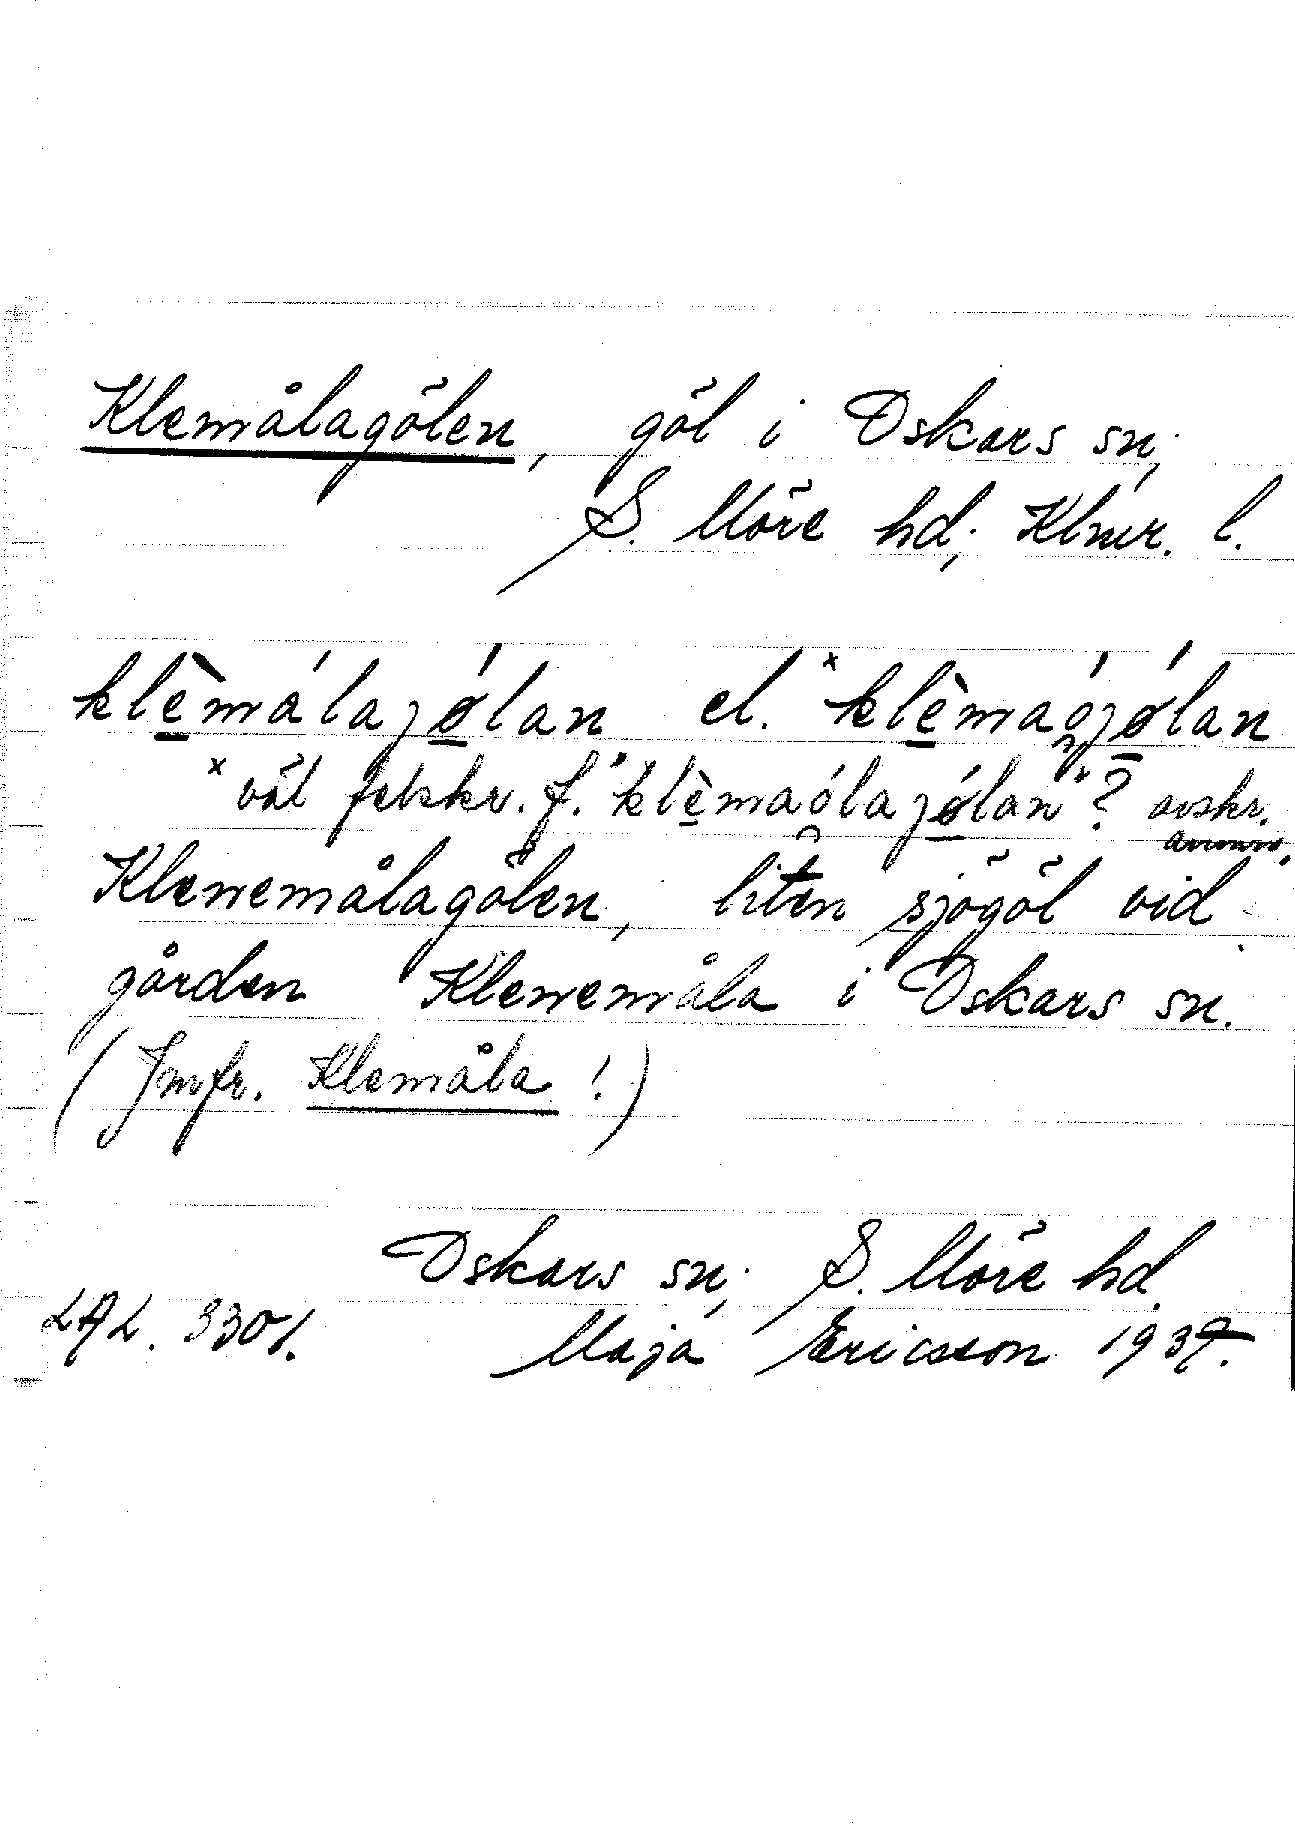 Klemålagölen, göl i Oskars sn;
S. Möre hd; Klmr. l.
klèmálajólan el. ˣklèmaójólan
ˣväl felskr. f. "klèmaólajólan"? avskr.
anm.
Klevemålagölen, liten sjögöl vid
gården Klevemåla i Oskars sn.
(Jmfr. Klemåla!)
Oskars sn; S. Möre hd.
LAL. 3301. Maja Ericsson 1937.